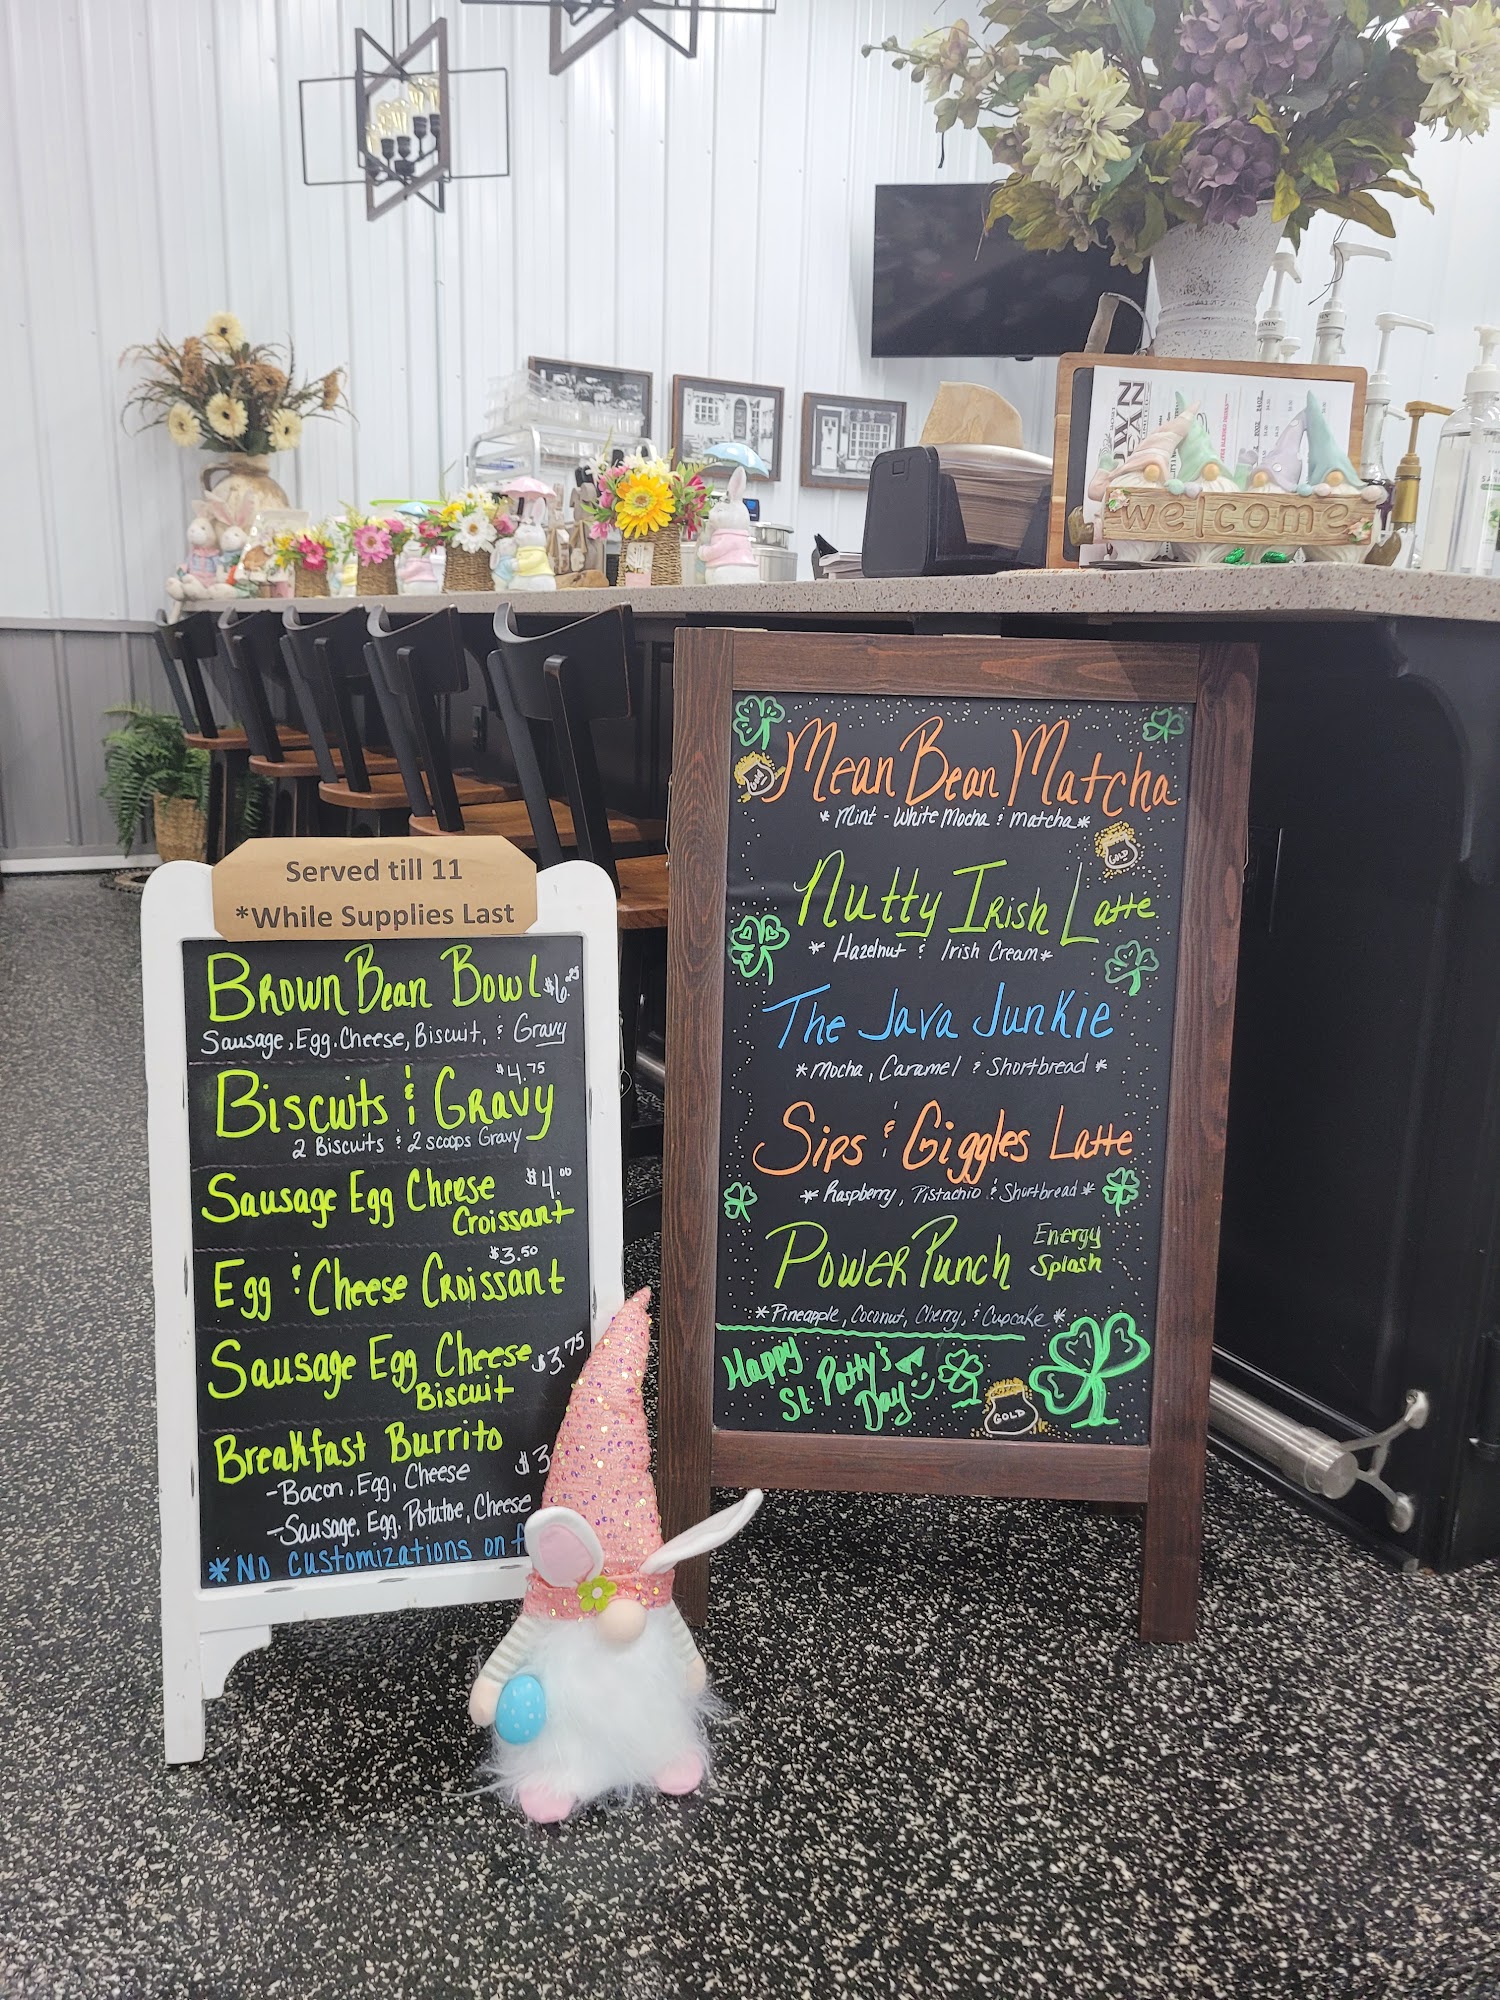 Served till 11
*While Supplies Last
Brown Bean Bowl $6.25
Sausage, Egg, Cheese, Biscuit, & Gravy
$4.75
Biscuits & Gravy
2 Biscuits & 2 scoops Gravy
Sausage Egg Cheese $4.00
Croissant
$3.50
Egg & Cheese Croissant
Sausage Egg Cheese $3.75
Biscuit
Breakfast Burrito
-Bacon, Egg, Cheese $3
-Sausage, Egg, Potatoe, Cheese
*No customizations on
Mean Bean Matcha
* Mint - White Mocha & matcha *
GOLD
Nutty Irish Latte
* Hazelnut & Irish Cream *
The Java Junkie
* Mocha, Caramel & Shortbread *
Sips & Giggles Latte
* Raspberry, Pistachio & Shortbread *
Power Punch Energy
Splash
* Pineapple, Coconut, Cherry, & Cupcake *
Happy
St Patty's
Day
GOLD
welcome